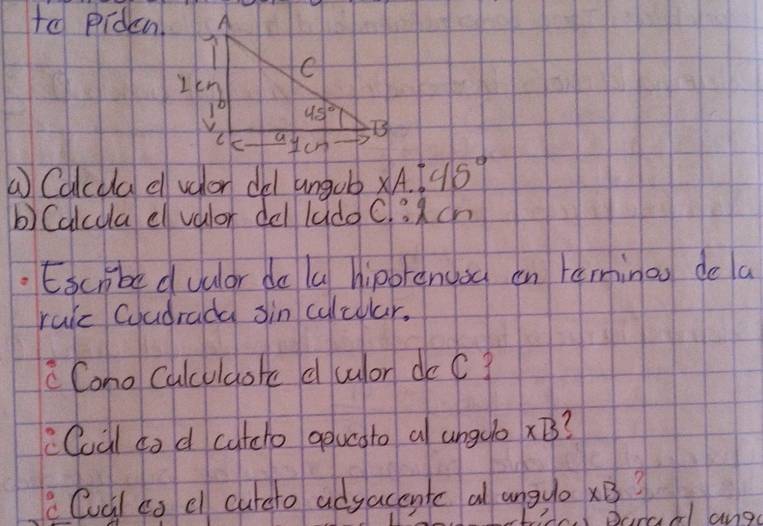 te Piden.
A
1cm
b
C
45°
B
c
a
1cm
a) Calcula el valor del angulo ×A.: 45°
b) Calcula el valor del lado C.: 1cm
• Escribe el valor de la hipotenusa en terminos de la
raiz Cuadrada sin calcular.
¿Como Calculaste el valor de C?
¿Cuál es el cateto opuesto al angulo ×B?
¿Cuál es el cateto adyacente al angulo ×B?